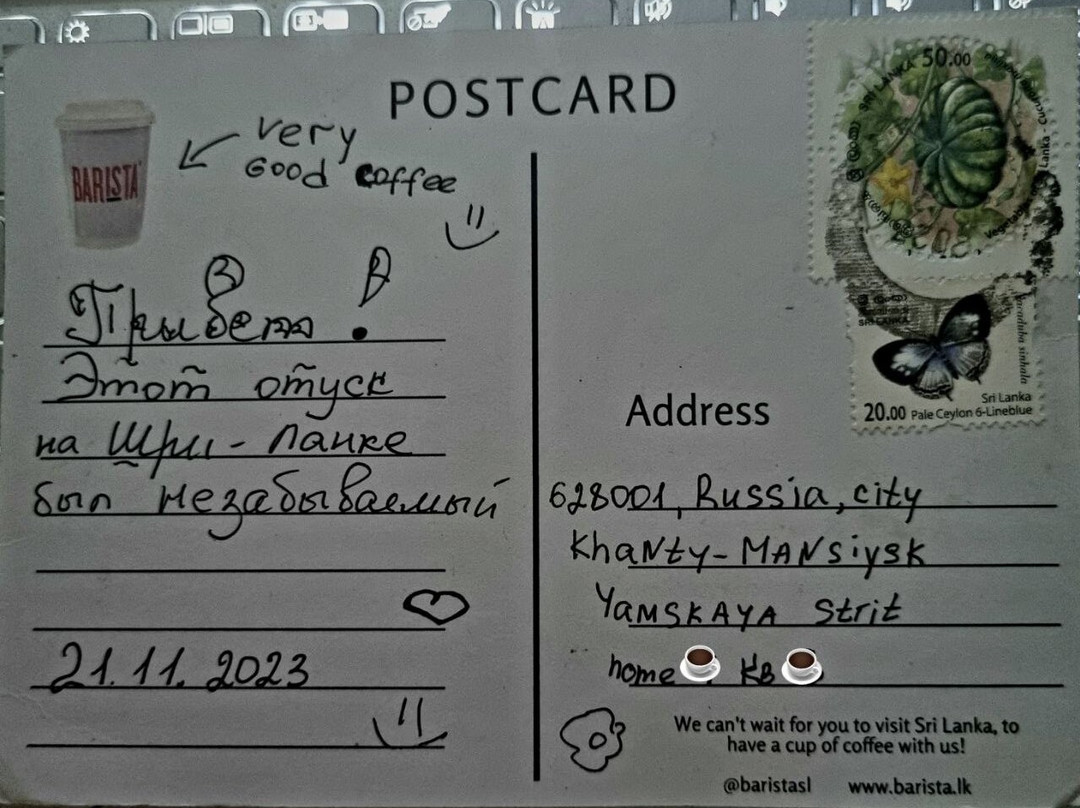 POSTCARD
BARISTA
very
Good coffee
Привет!
Этот отуск
на Шри-Ланке
был незабываемый
21.11.2023
SRI LANKA 50.00
SRI LANKA
Sri Lanka
20.00 Pale Ceylon 6-Lineblue
Address
628001, Russia, city
Khanty-MANsiysk
YaMSKAYA Strit
home КВ
We can't wait for you to visit Sri Lanka, to
have a cup of coffee with us!
@baristasl www.barista.lk